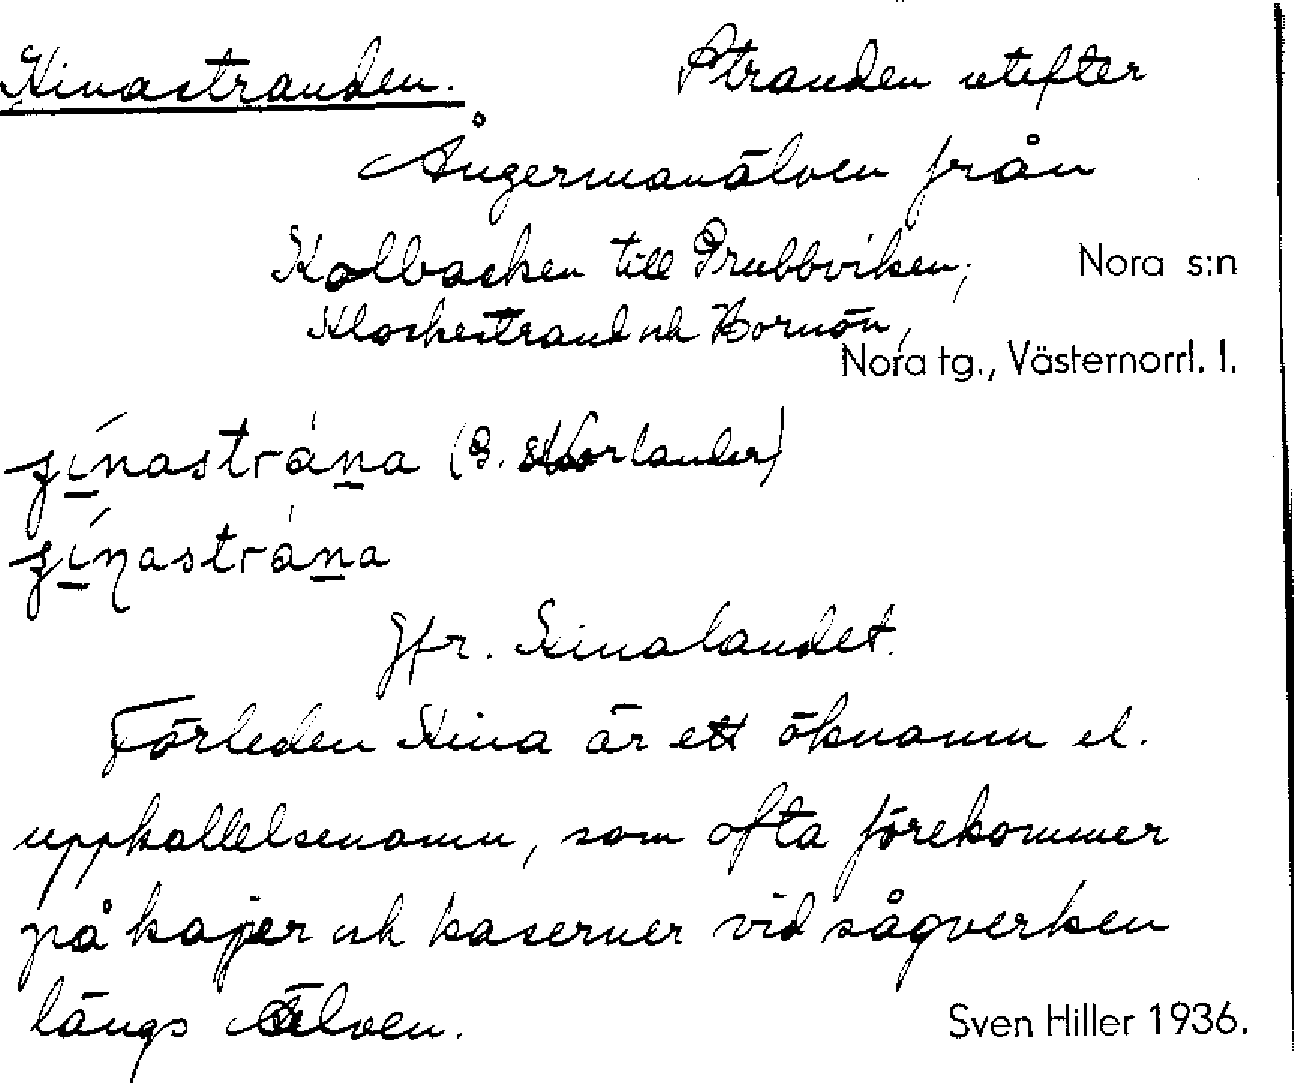 Kinastranden. Stranden utefter
Ångermanälven från
Kolbacken till Prubbviken, Nora s:n
Klockestrand och Hornön,
Nora tg., Västernorrl. l.
(B. Norlander)
Jfr. Kinalandet.
Förleden Kina är ett öknamn el.
uppkallelsenamn, som ofta förekommer
på kajer och kaserner vid sågverken
längs älven. Sven Hiller 1936.